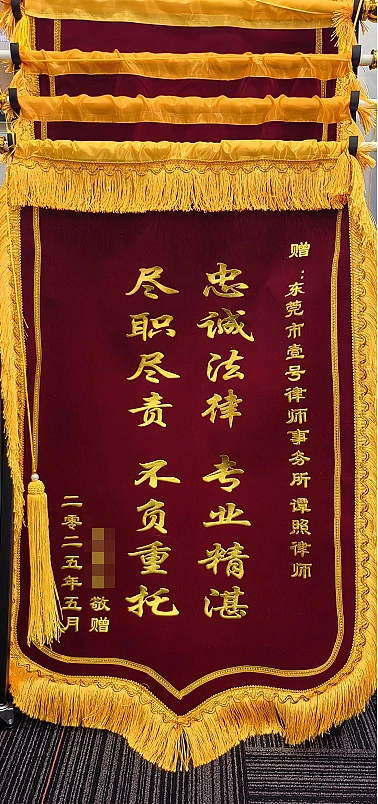 赠：东莞市壹号律师事务所 谭照律师
忠诚法律 专业精湛
尽职尽责 不负重托
敬赠
二零二五年五月